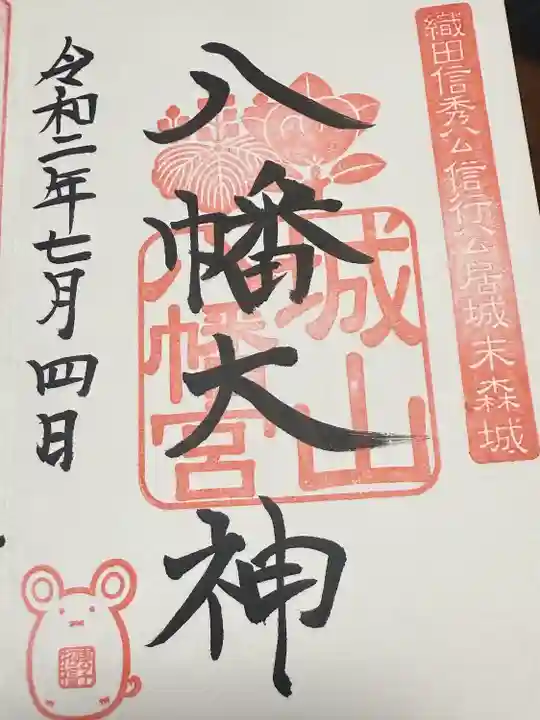 織田信秀公信行公居城末森城
八幡大神
城山
八幡宮
令和二年七月四日